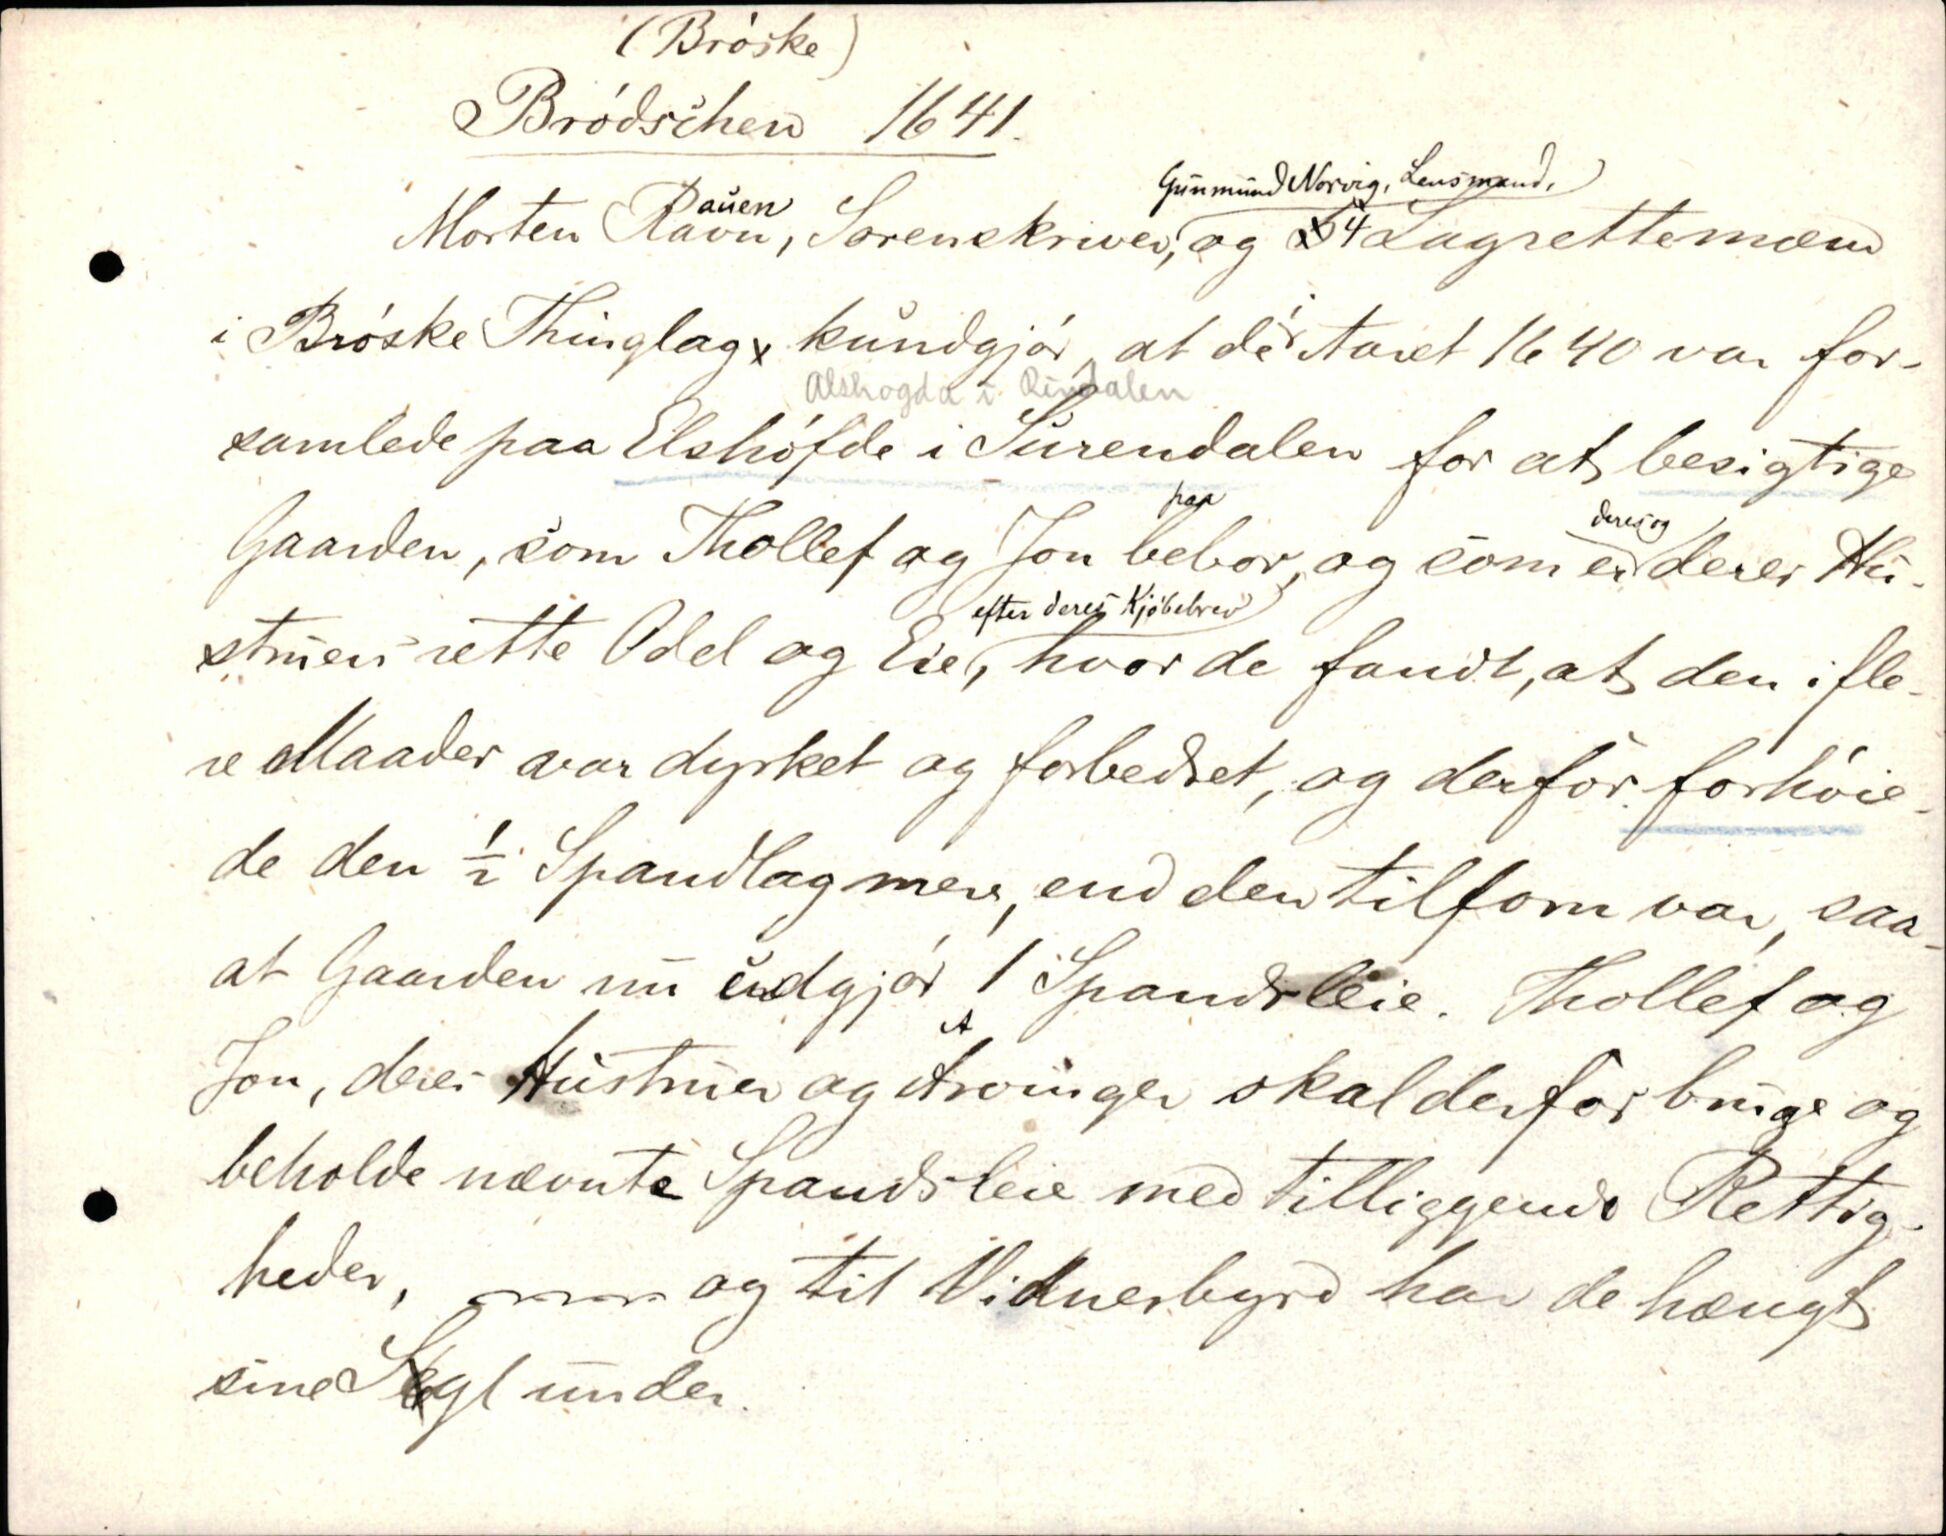 (Bröske)
Brödschen 1641.
Gunmund Norvig, Lensmand,
auen
Morten Ravn, Sorenskriver, og 4 Lagrettemænd
i Bröske Thinglag, kundgjör, at de i Aaret 1640 var for-
Alshogda i Rindalen
samlede paa Elshöfde i Surendalen for at besigtige
paa
deres og
Gaarden, som Thollef og Jon bebor, og som er deres Hu-
efter deres Kjöbebrev
struers rette Odel og Eie, hvor de fandt, at den i fle-
re Maader var dyrket og forbedret, og derfor forhöie-
de den ½ Spandlag mere, end den tilforn var, saa-
at Gaarden nu udgjör 1 Spandsleie. Thollef og
A
Jon, deres Hustruer og Arvinger skal derfor bruge og
beholde nævnte Spandsleie med tilliggende Rettig-
heder, og til Vidnesbyrd har de hængt
sine Segl under.